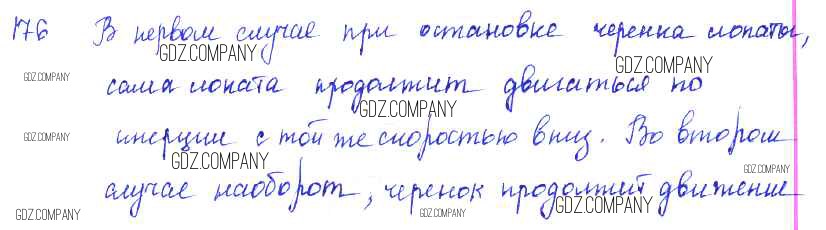 176 В первом случае при остановке черенка лопаты,
GDZ.COMPANY GDZ.COMPANY
GDZ.COMPANY сама лопата продолжит двигаться по
GDZ.COMPANY
GDZ.COMPANY инерции с той же скоростью вниз. Во втором
GDZ.COMPANY GDZ.COMPANY
случае наоборот, черенок продолжит движение
GDZ.COMPANY GDZ.COMPANY GDZ.COMPANY